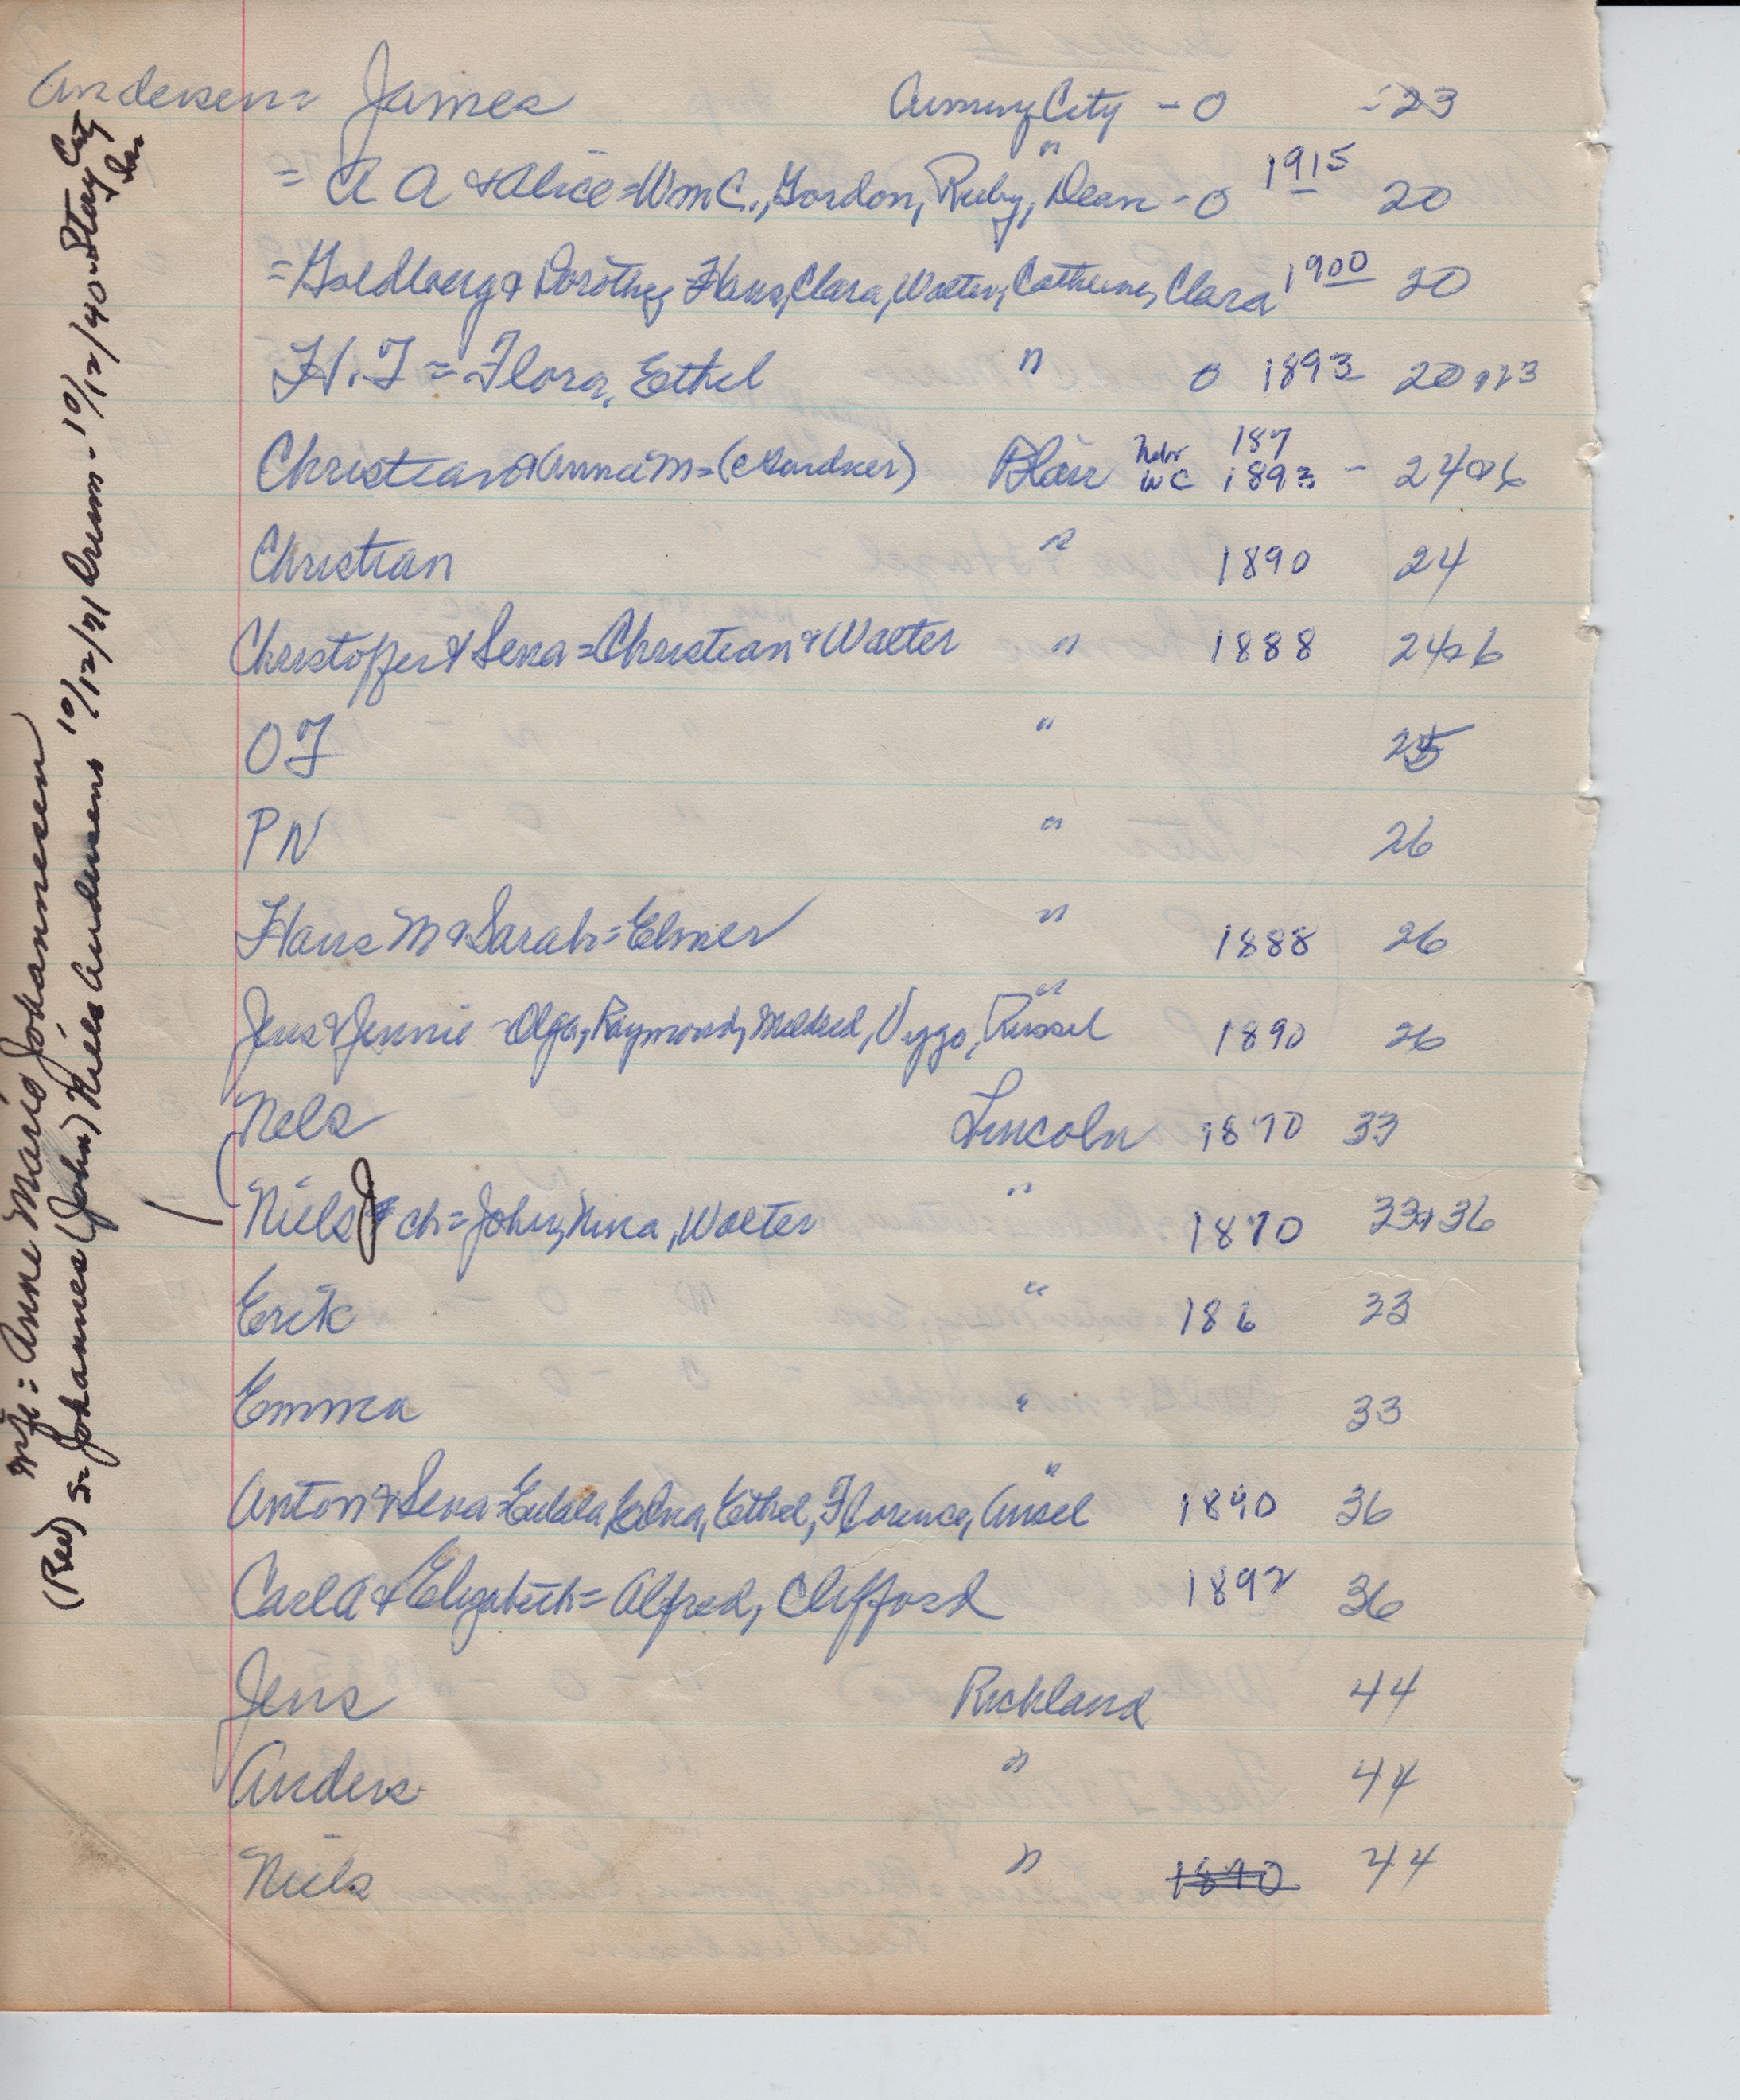 Andersen = James Cuming City - 0 - 23
= A A & Alice = Wm C., Gordon, Ruby, Dean " - 0 1915 20
= Goldberg & Dorothy Hans, Clara, Walter, Catherine, Clara 1900 20
H. F = Flora, Ethel " 0 1893 20 & 23
Christian & Anna M = (C Gardner) Blair Nebr 187 WC 1893 - 24 & 26
Christian " 1890 24
Christoffer & Sena = Christian & Walter " 1888 24 & 26
O F " 25
P N " 26
Hans M & Sarah = Elmer " 1888 26
Jens & Jennie - Olga, Raymond, Mildred, Vygo, Russel " 1890 26
Nels Lincoln 1870 33
Niels J ch = John, Nina, Walter " 1870 33 & 36
Erik " 186 33
Emma " 33
Anton & Sena = Eulala, Edna, Ethel, Florence, Ansel " 1890 36
Carl A & Elizabeth = Alfred, Clifford 1892 36
Jens Richland 44
Anders " 44
Niels " 1870 44
Wife = Anne Marie Johannesen
(Red) S = Johannes (John) Niels Andersens 10/12/71 Drum - 10/12/40 - Story City Ia